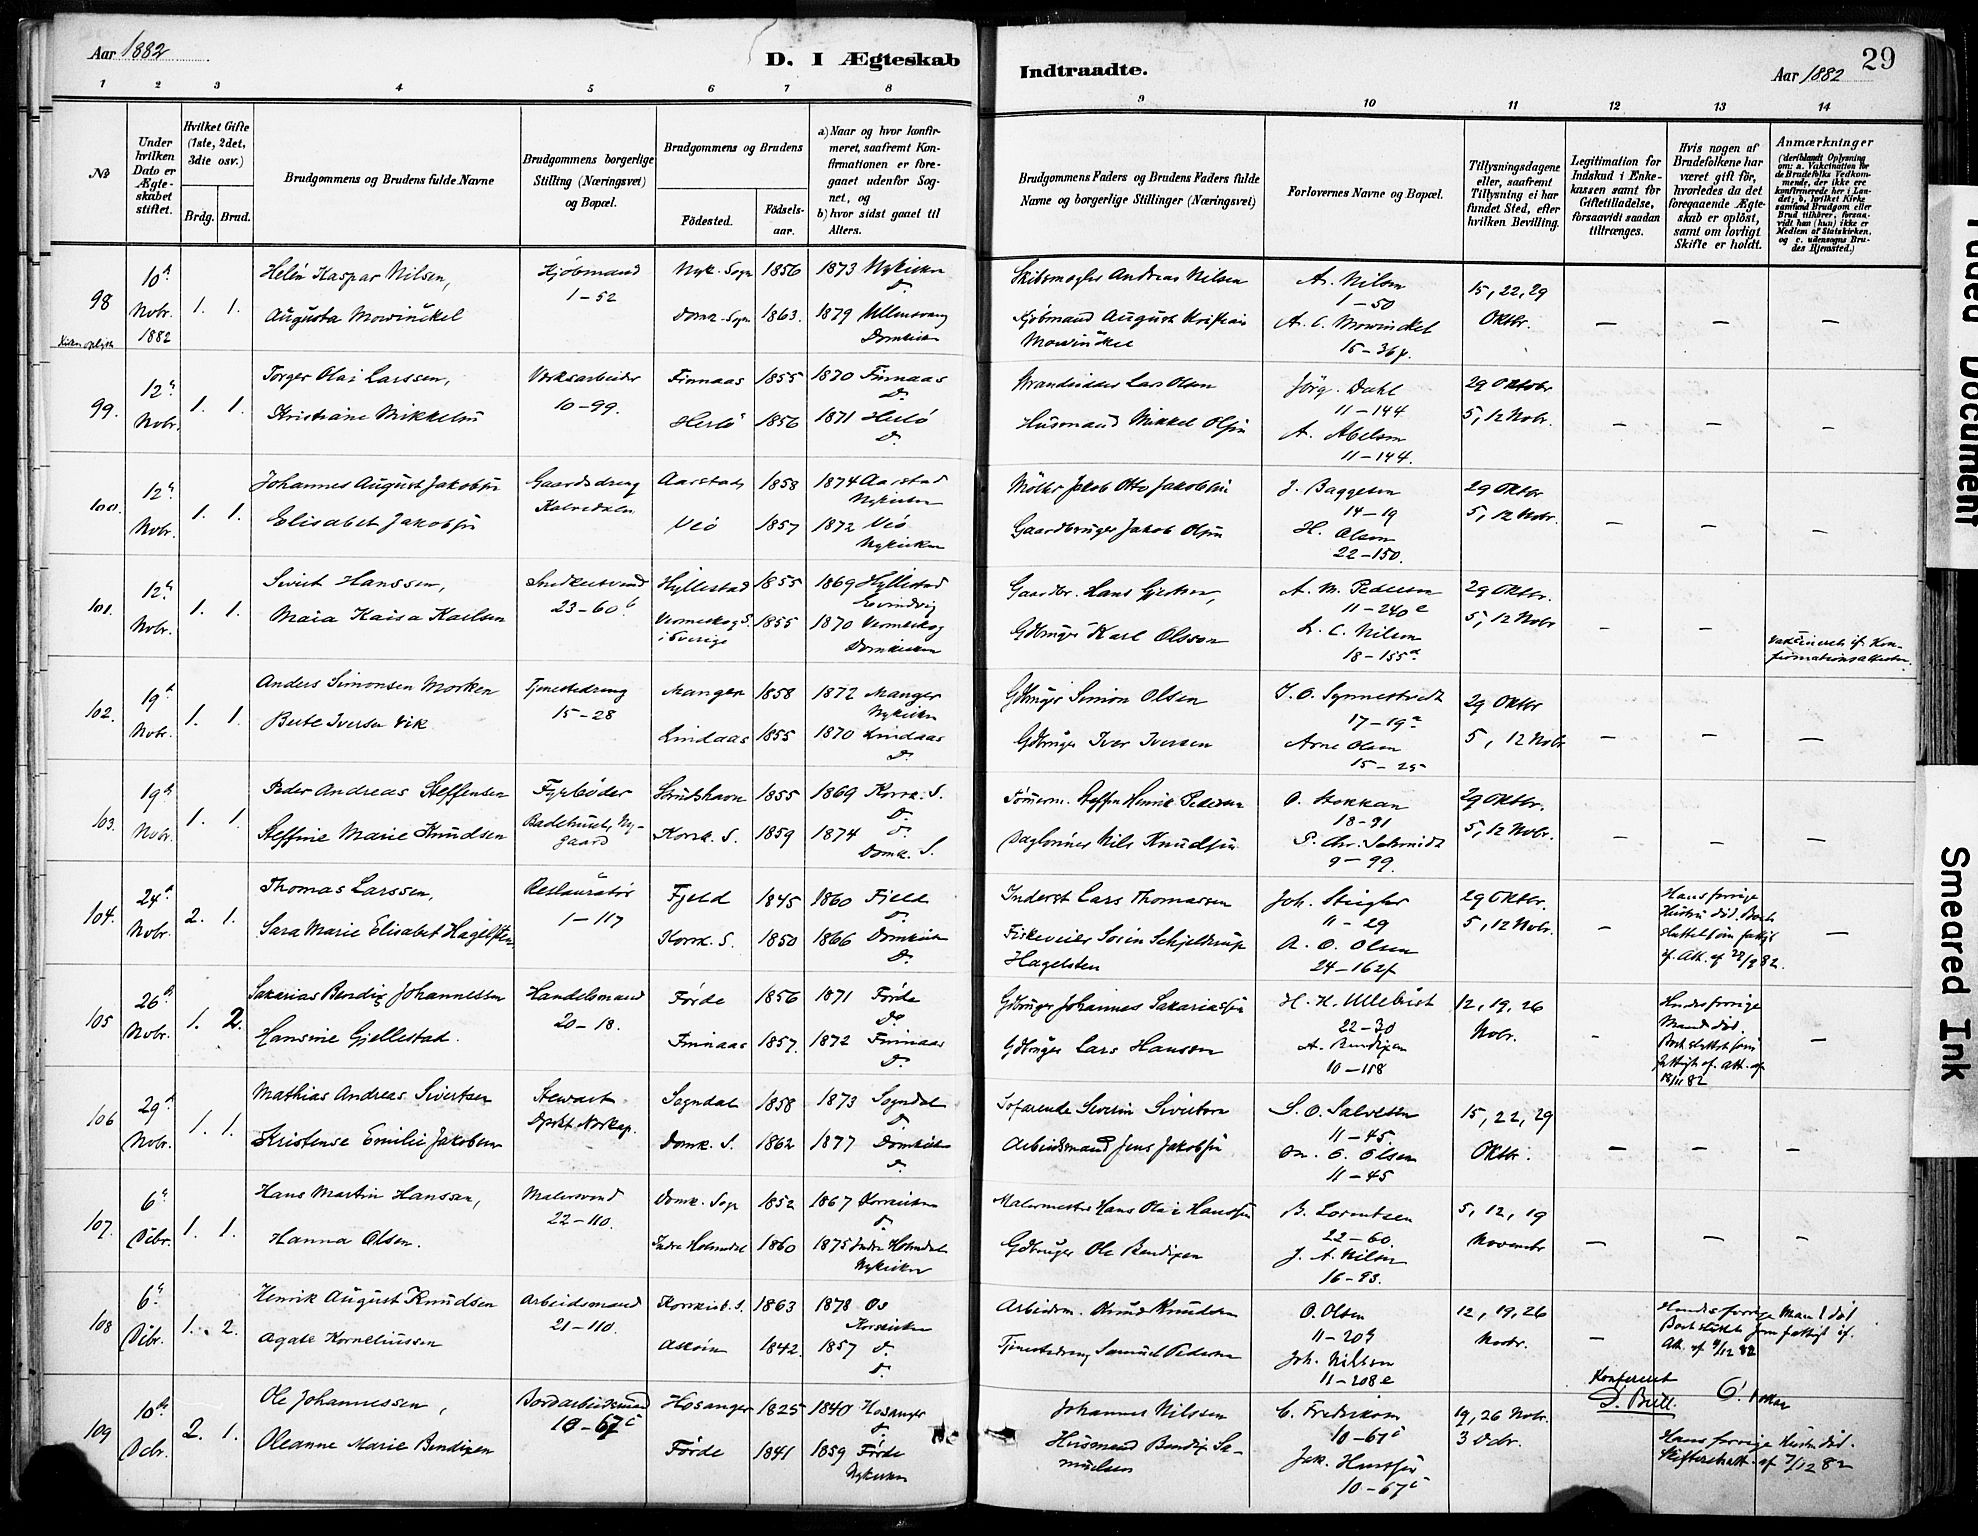 Aar 1882
D. I Ægteskab
Indtraadte.
Aar 1882
29
1 2 3 4 5 6 7 8 9 10 11 12 13 14
No
Under hvilken Dato er Ægteskabet stiftet.
Hvilket Gifte (1ste, 2det, 3die osv.)
Brdg. Brud.
Brudgommens og Brudens fulde Navne
Brudgommens borgerlige Stilling (Næringsvei) og Bopæl.
Brudgommens og Brudens
Fødested.
Fødselsaar.
a) Naar og hvor konfirmeret, saafremt Konfirmationen er foregaaet udenfor Sognet, og
b) hvor sidst gaaet til Alters.
Brudgommens Faders og Brudens Faders fulde Navne og borgerlige Stillinger (Næringsvei)
Forlovernes Navne og Bopæl.
Tillysningsdagene eller, saafremt Tillysning ei har fundet Sted, efter hvilken Bevilling.
Legitimation for Indskud i Enkekassen samt for Giftetilladelse, forsaavidt saadan tiltrænges.
Hvis nogen af Brudefolkene har været gift før, hvorledes da det foregaaende Ægteskab er opløst, samt om lovligt Skifte er holdt.
Anmærkninger
(deriblandt Oplysning om: a. Vakcination for de Brudefolks Vedkommende, der ikke ere konfirmerede her i Landet; b. hvilket Kirkesamfund Brudgom eller Brud tilhører, forsaavidt han (hun) ikke er Medlem af Statskirken, og c. udensogns Brudes Hjemsted.)
98 10de Nobr. 1882 1. 1.
Helén Kaspar Nilsen, Kjøbmand 1-52 Nyk. Sogn 1856 1873 Nykirken D. Skibsmægler Andreas Nilsen A. Nilsen 1-50 15, 22, 29 Oktbr.
Augusta Mowinckel Domk. Sogn 1863. 1879 Ullensvang Domkirken Kjøbmand August Kristian Mowinckel A. C. Mowinckel 15-36
99. 12te Nobr. 1. 1.
Torger Olai Larssen, Værksarbeider 10-99. Finnaas 1855 1870 Finnaas D. Strandsidder Lars Olsen Jörg. Dahl 11-144 29 Oktobr. 5, 12 Nobr.
Kristiane Mikkelsen Herlö 1856 1871 Herlö D. Husmand Mikkel Olsen A. Abelsen 11-144.
100. 12te Nobr. 1. 1.
Johannes August Jakobsen Gaardsdreng Kalvedalen Aarstad 1858 1874 Aarstad Nykirken Møller Jakob Otto Jakobsen J. Baggesen 14-19 29 Oktbr 5, 12 Nobr.
Elisabet Jakobsen Veö 1857 1872 Veö Nykirken Gaardbruger Jakob Olsen H. Olsen 22-150.
101. 12te Nobr. 1. 1.
Sivert Hanssen, Snedkersvend 23-60b Hyllestad 1855 1869 Hyllestad Evindvig Gaardbr. Hans Gjertsen, A. M. Pedersen 11-240e 29 Oktbr. 5, 12 Nobr
Maia Kaisa Karlsen i Sverige 1855 1870 Domkirken Gdbruger Karl Olsson L. C. Nilsen 18-155a Vakcineret if. Konfirmationsattesten.
102. 19de Nobr. 1. 1.
Anders Simonsen Morken Tjenestedreng 15-28 Manger 1858 1872 Manger Nykirken Gdbruger Simon Olsen J. O. Synnestvedt 17-19a 29 Oktbr 5, 12 Nobr.
Berte Iversen Vik Lindaas 1855 1870 Lindaas D. Gdbruger Iver Iversen Arne Olsen 15-25
103. 19de Nobr. 1. 1.
Peder Andreas Steffensen Fyrbøder Badehuset, Nygaard Strudshavn 1855 1869 Korsk. S. D. Tømerm. Steffen Henrik Pedersen O. Stokkan 18-91 29 Oktbr. 5, 12 Nobr.
Steffine Marie Knudsen Korsk. S. 1859 1874 D. Domk. S. Daglønner Nils Knudsen P. Chr. Schmidt 9-99.
104. 24de Nobr. 2. 1.
Thomas Larssen, Restauratør 1-117 Fjeld 1845 1860 Fjeld D. Inderst Lars Thomassen Joh. Stiegler 11-29 29 Oktbr. 5, 12 Nobr. Hans forrige Hustru död. Bortsluttet som fattigt if. Att. af 82.
Sara Marie Elisabet Hagelsten Korsk. S. 1850 1866 Domkirken D. Fiskeveier Sörin Schjelderup Hagelsten A. O. Olsen 24-162f
105 26de Nobr. 1. 2.
Sakarias Bendix Johannessen Handelsmand 20-18. Førde 1856 1871 Førde Do Gdbruger Johannes Sakariassen H. H. Ullebust 22-30 12, 19, 26 Nobr. Hendes forrige Mand död. Bortsluttet som fattigt if. Att. af 18/11 82
Hansine Gjellestad. Finnaas 1857. 1872 Finnaas D. Gdbruger Lars Hansen A. Bendixen 10-158
106 29de Nobr. 1. 1.
Mathias Andreas Sivertsen Stewart Dpskt Nordkap. Sogndal 1858 1873 Sogndal D. Søfarende Severin Sivertsen S. O. Salvesen 11-45. 15, 22, 29 Oktbr.
Kristense Emilie Jakobsen Domk. S. 1862 1877 Domkirken D. Arbeidsmand Jens Jakobsen O. Olsen 11-45
107. 6te Decbr. 1. 1.
Hans Martin Hanssen, Malersvend 22-110. Domk. Sogn 1852 1867 Korskirken D. Malermester Hans Olai Hanssen B. Lorentsen 22-60. 5, 12, 19 Novembr
Hanna Olsen. Indre Holmedal 1860 1875 Indre Holmedal Nykirken Gdbruger Ole Bendixen J. A. Nilsen 16-93.
108 6te Decbr. 1. 2.
Henrik August Knudsen Arbeidsmand 21-110. Korskirk. S. 1863 1878 Os Korskirken Arbeidsm. Knud Knudsen O. Olsen 11-209 12, 19, 26 Novbr. Hendes forrige Mand död Bortsluttet som fattigt if. Att. af 4/12 82
Agate Korneliussen Askøen 1842. 1857 D. D. Tjenestedreng Samuel Pedersen Joh. Nilsen 11-208e
Konfereret
109 10de Decbr. 2. 1.
Ole Johannessen, Jordarbeidsmand 10-67c Hosanger 1825 1840 Hosanger D. Johannes Nilssen C. Fredriksen 10-67c 19, 26 Nobr. 3 Decbr. Hans forrige Hustru död. Skifterettsatt. af 7/12 82
Oleanne Marie Bendixen Førde 1841 1859 Førde Nykirken Husmand Bendix Samuelsen Jak. Hansen 10-67c
Faded Document
Smeared Ink